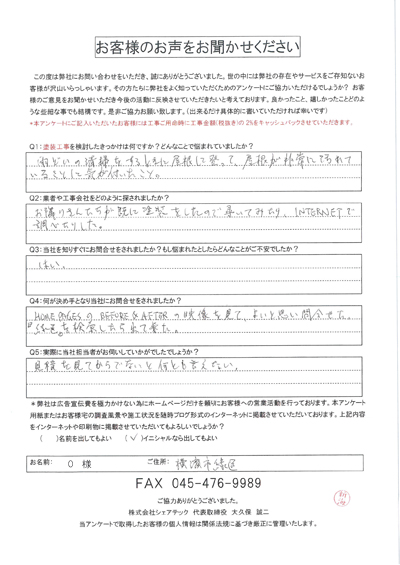 お客様のお声をお聞かせください
この度は弊社にお問い合わせをいただき、誠にありがとうございました。世の中には弊社の存在やサービスをご存知ないお
客様が沢山いらっしゃいます。その方たちに弊社をよく知っていただくためのアンケートにご協力いただけるでしょうか? お客
様のご意見をお聞かせいただき今後の活動に反映させていただきたいと考えております。良かったこと、嬉しかったことどのよ
うな些細な事でも結構です。是非ご協力お願い致します。(出来るだけ具体的に書いていただければ幸いです)
*本アンケートにご記入いただいたお客様には工事ご用命時に工事金額(税抜き)の 2%をキャッシュバックさせていただきます。
Q1:塗装工事を検討したきっかけは何ですか?どんなことで悩まれていましたか?
雨どいの清掃をするときに屋根に登って、屋根が非常に
いることに気が付いたこと。
Q2:業者や工事会社をどのように探されましたか?
お隣りさんたちが既に塗装をしたので聞いてみたり、INTERNETで
調べたりした。
Q3:当社を知りすぐにお問合せをされましたか?もし悩まれたとしたらどんなことがご不安でしたか?
はい。
Q4:何が決め手となり当社にお問合せをされましたか?
HOME PAGESのBEFORE&AFTERの映像を見て、よいと思い問合せた。
を検索したら出て来た。
Q5:実際に当社担当者がお伺いしていかがでしたでしょうか?
見積を見てからでないと何とも言えない。
*弊社は広告宣伝費を極力かけない為にホームページだけを頼りにお客様への営業活動を行っております。本アンケート
用紙またはお客様宅の調査風景や施工状況を随時ブログ形式のインターネットに掲載させていただいております。上記内容
をインターネットや印刷物に掲載させていただいてもよろしいでしょうか?
( )名前を出してもよい (✓)イニシャルなら出してもよい
お名前: O 様 ご住所: 横浜市緑区
FAX 045-476-9989
ご協力ありがとうございました。
株式会社シェアテック 代表取締役 大久保 誠二
当アンケートで取得したお客様の個人情報は関係法規に基づき厳正に管理いたします。